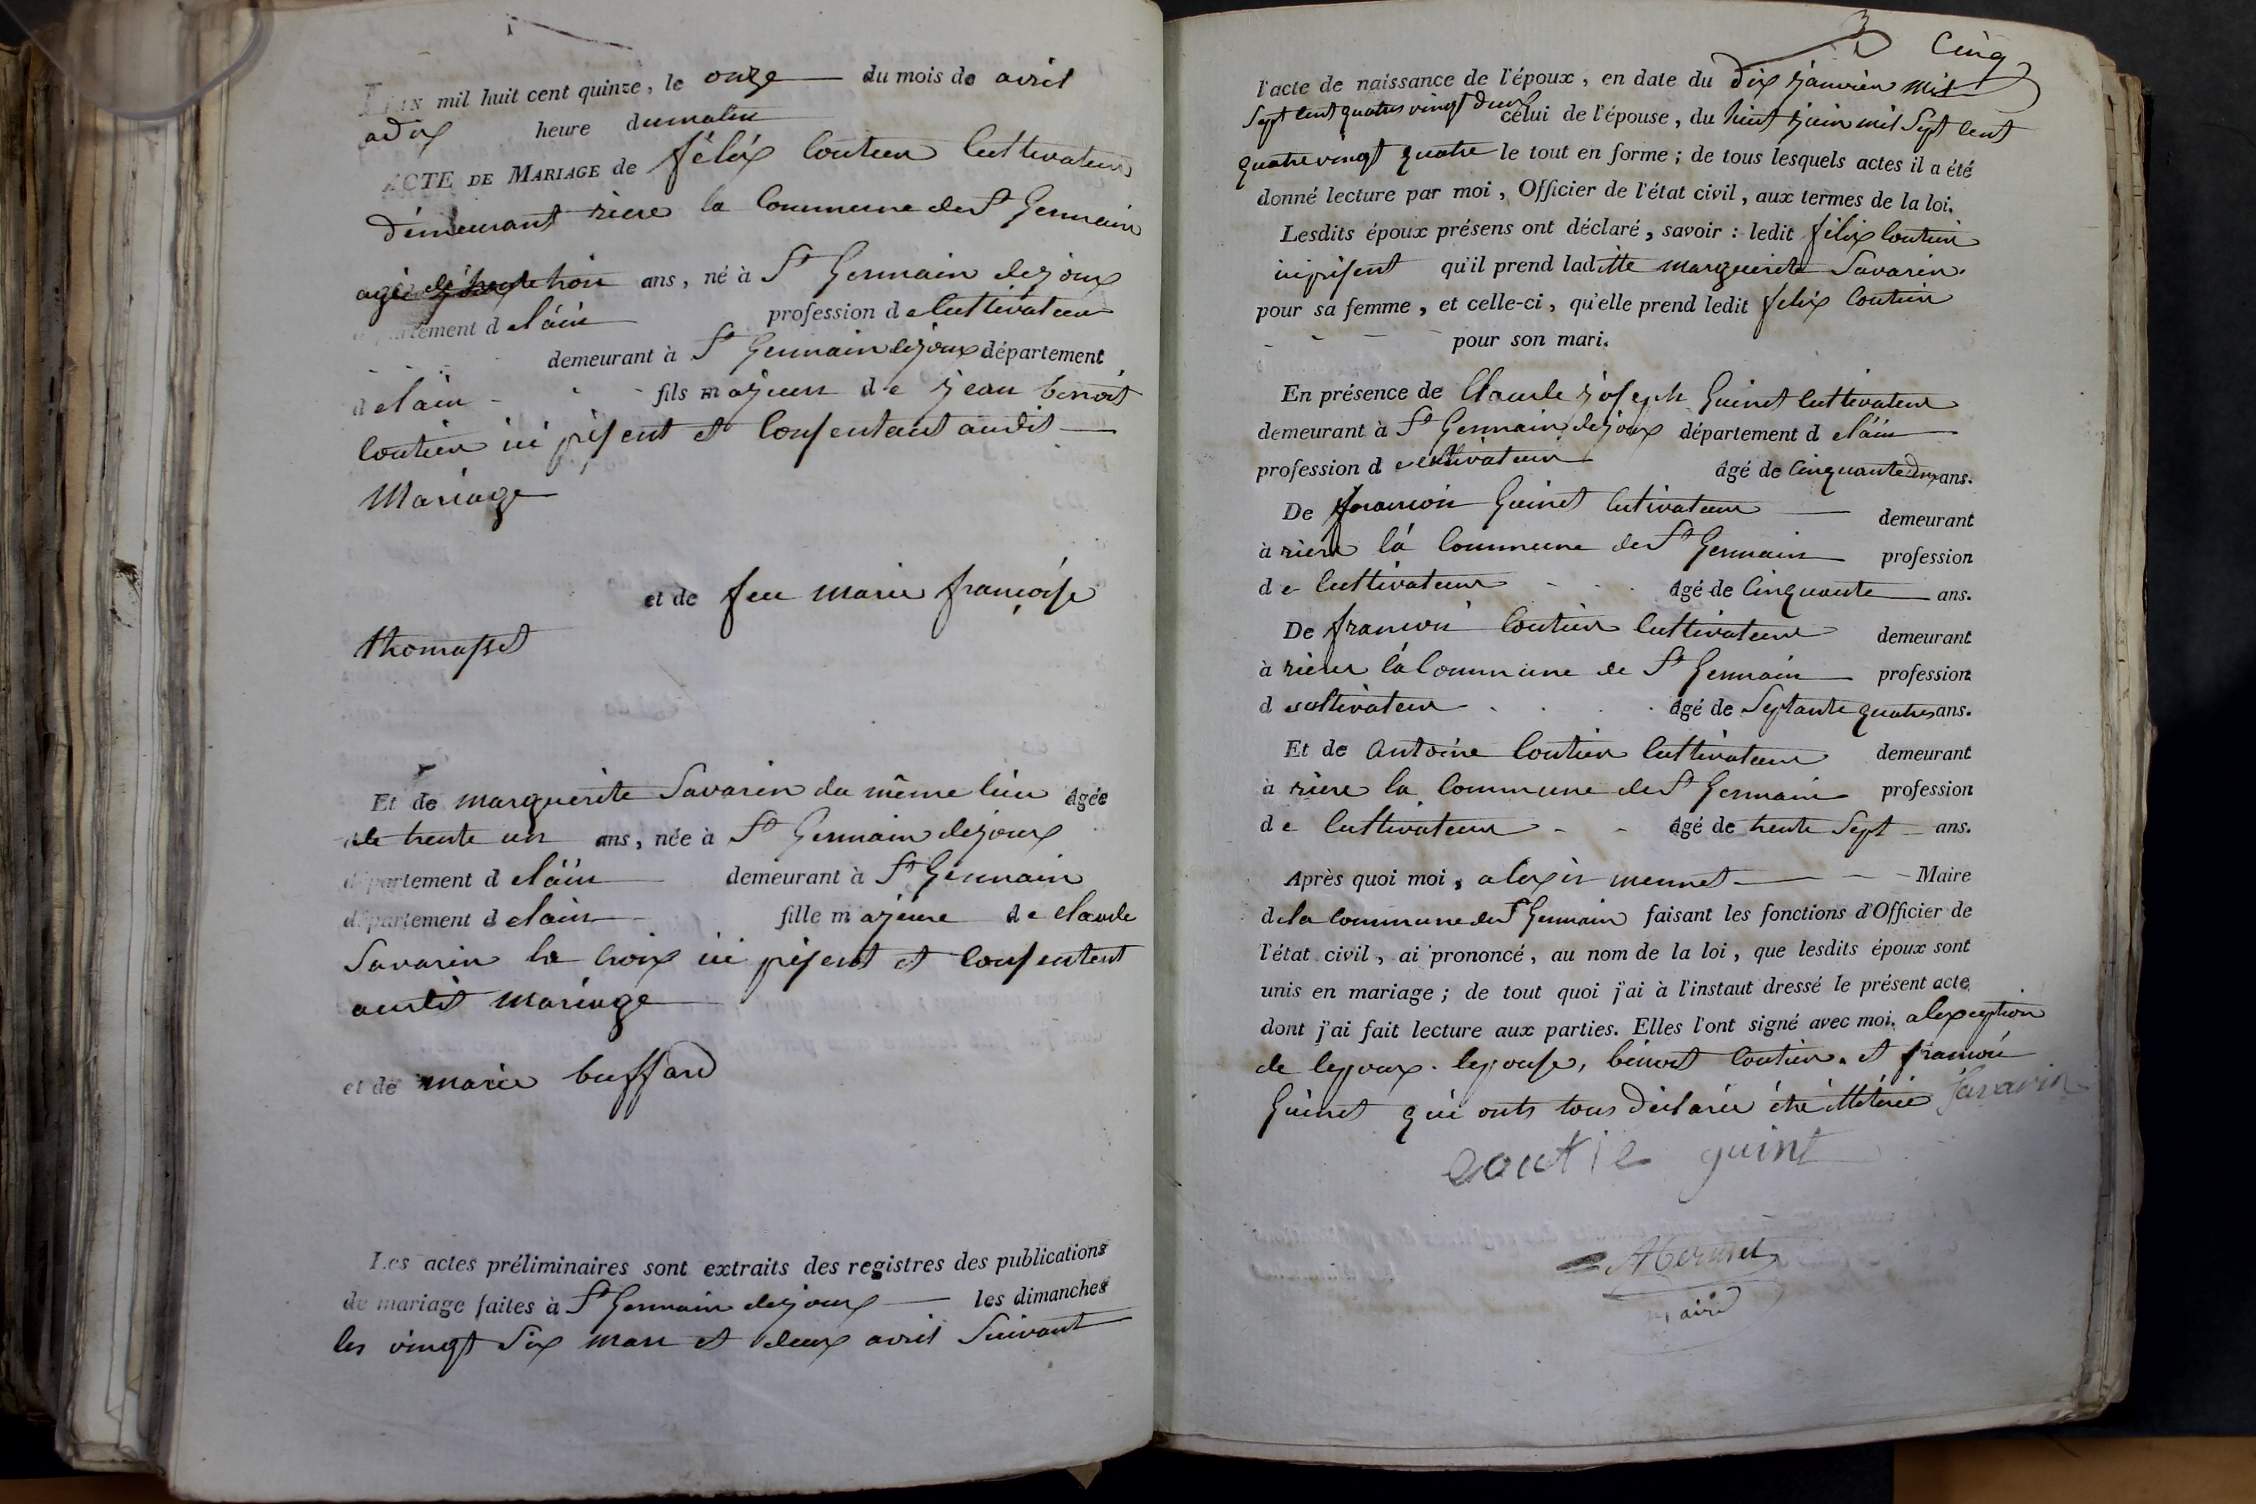 L'AN mil huit cent quinze, le onze du mois de avril
a dix heure du matin
ACTE DE MARIAGE de félix Coutier Cultivateur
démeurant riere la Commune de St Germain
agé de trente trois ans, né à St Germain dejoux
département d elain profession d e Cultivateur
demeurant à St Germain dejoux département
d elain fils majeur de jean benoit
Coutier ici présent et Consentant audit
Mariage
et de feu marie françoise
thomasset
Et de marguerite Savarin du même lieu agée
de trente un ans, née à St Germain dejoux
département d elain demeurant à St Germain
département d elain fille majeure de claude
Savarin la croix ici présent et Consentent
audit mariage
et de marie buffard
Les actes préliminaires sont extraits des registres des publications
de mariage faites à St Germain dejoux les dimanches
les vingt Six mars et deux avril Suivant
3 Cinq
l'acte de naissance de l'époux, en date du dix janvier mil
Sept Cent quatre vingt deux celui de l'épouse, du huit juin mil Sept Cent
quatre vingt quatre le tout en forme; de tous lesquels actes il a été
donné lecture par moi, Officier de l'état civil, aux termes de la loi.
Lesdits époux présens ont déclaré, savoir : ledit félix Coutier
ici présent qu'il prend laditte marguerite Savarin
pour sa femme, et celle-ci, qu'elle prend ledit felix Coutier
pour son mari.
En présence de Claude joseph Guinet Cultivateur
demeurant à St Germain dejoux département d elain
profession d e Cultivateur âgé de Cinquante deux ans.
De françois Guinet Cultivateur demeurant
à riere la Commune de St Germain profession
d e Cultivateur âgé de Cinquante ans.
De françois Coutier Cultivateur demeurant
à riere la Commune de St Germain profession
d e Cultivateur âgé de Septante quatre ans.
Et de antoine Coutier Cultivateur demeurant
à riere la Commune de St Germain profession
d e Cultivateur âgé de trente Sept ans.
Après quoi moi, alexis mermet Maire
de la commune de St Germain faisant les fonctions d'Officier de
l'état civil, ai prononcé, au nom de la loi, que lesdits époux sont
unis en mariage; de tout quoi j'ai à l'instaut dressé le présent acte
dont j'ai fait lecture aux parties. Elles l'ont signé avec moi. alexception
de lepoux. lepouse, benoit Coutier. et francois
Guinet qui onts tous déclarée étre illétérée Savarin
coutie guint
A Mermet
maire